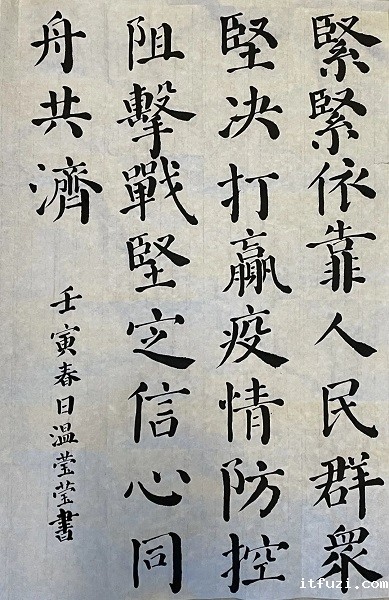 緊緊依靠人民群眾
堅决打贏疫情防控
阻擊戰堅定信心同
舟共濟
壬寅春日溫莹莹書
itfuzi.com